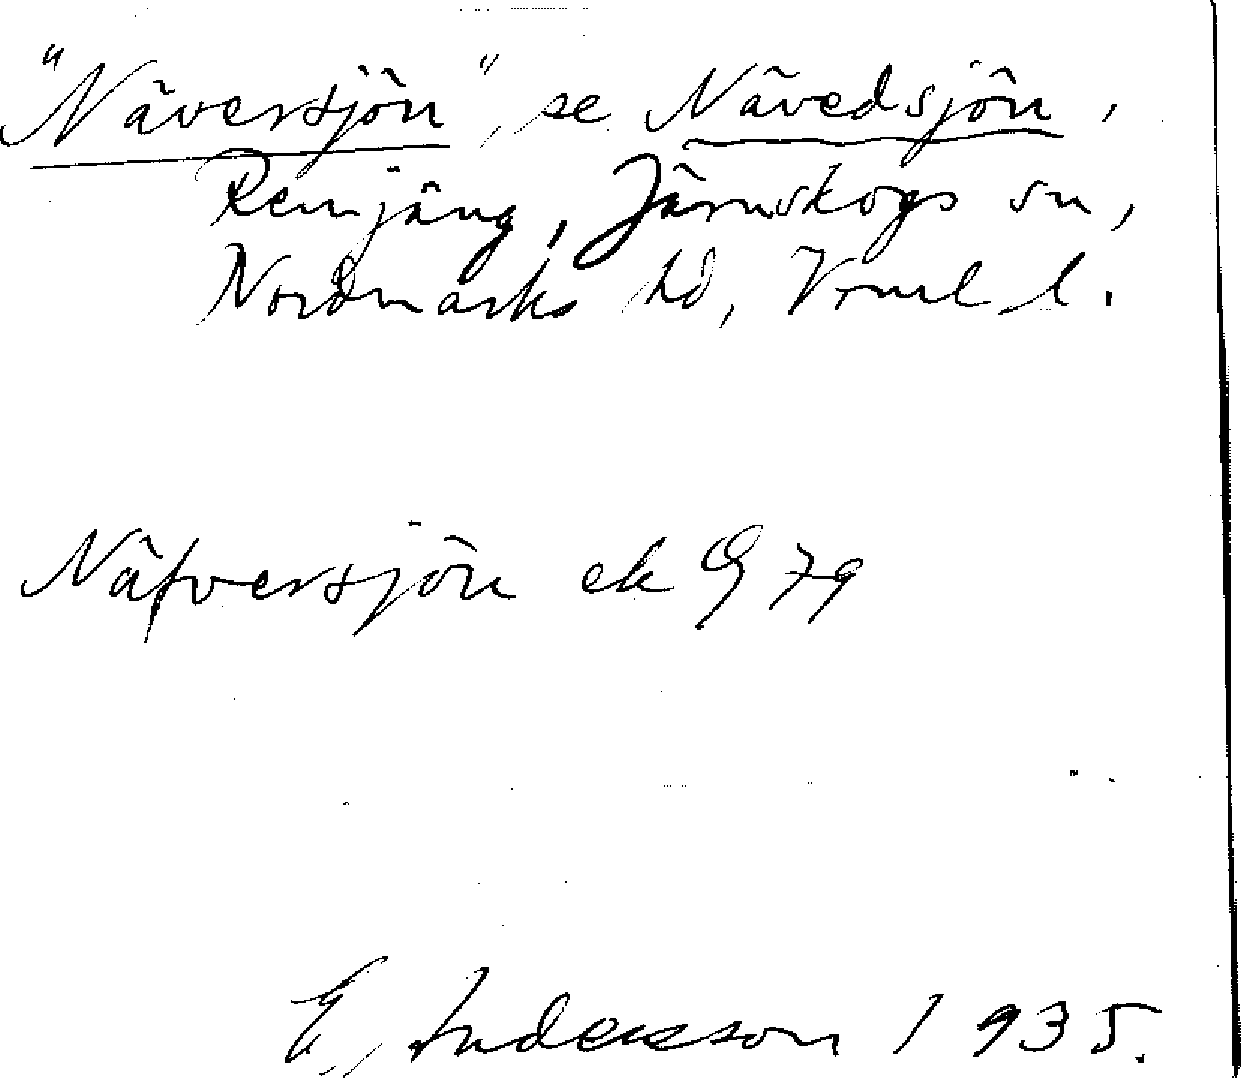 "Näversjön", se Nävedsjön,
Remjäng, Järnskogs sn,
Nordmarks hd, Vrml. l.
Näfversjön ek 9 79
E. Andersson 1935.